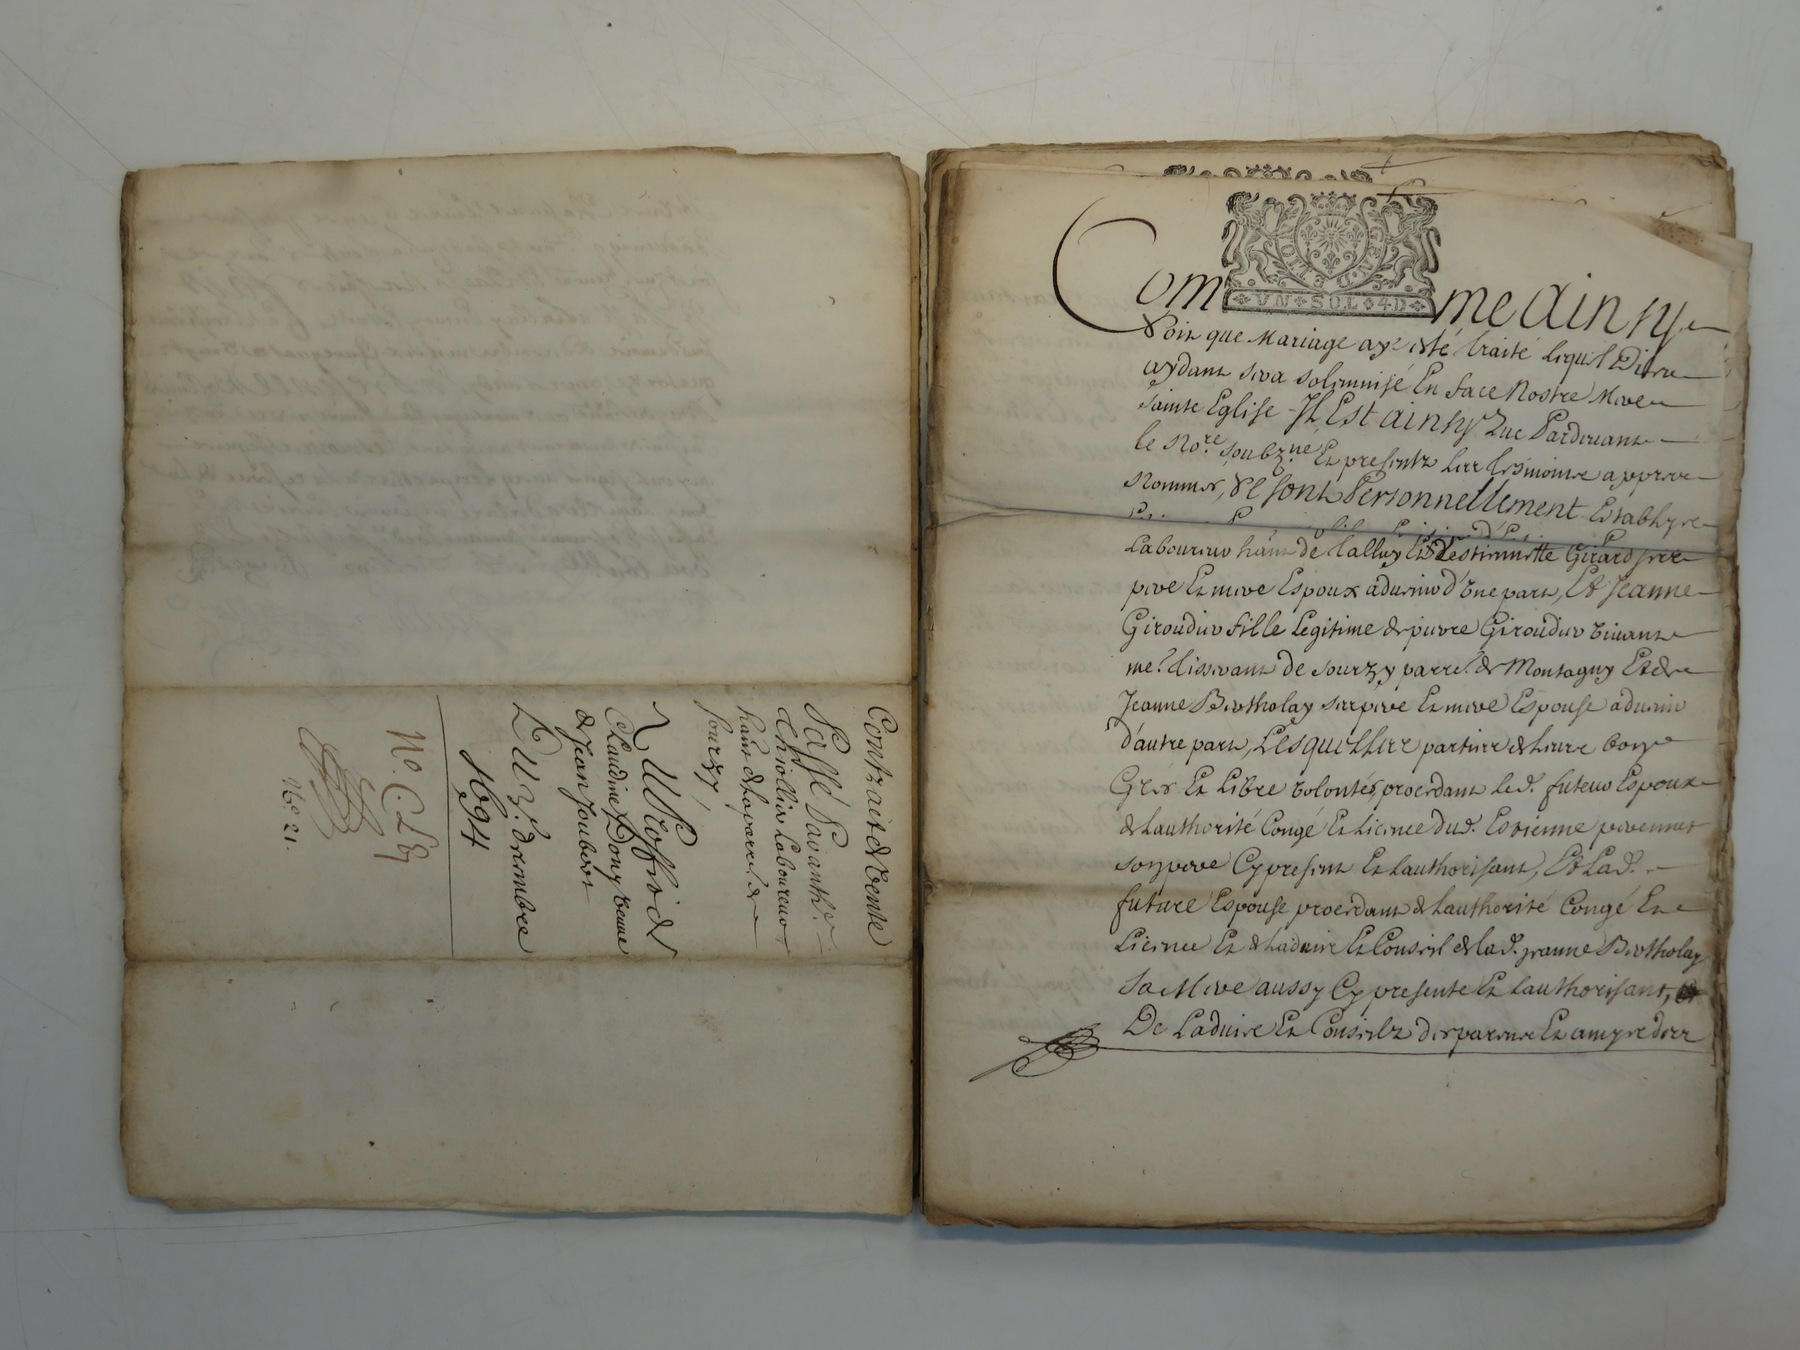 Contract de vente
Passé Par anthe
Thiollier Laboureur
habt de la parre. de
Sourzy,
AU Proffit de
Claudine Dony veuve
de Jean Joubert
DU 3e. decembre
1694
No. C. L 87
No 21.
Comme Ainsy
UN SOL 4D
Soit que Mariage aye esté traité lequel Dieu
aydant sera solemnisé En face Nostre Mere
Sainte Eglise Il Est ainsy Que Pardevant
le Nore. soubzne. Et presentz les tesmoins apprez
Nommez, Se sont Personnellement Establys
Laboureur habt de Et Estiennette Girard ses
pere Et mere Espoux advenir d'Une part, Et Jeanne
Giroudier fille Legitime de pierre Giroudier vivant
me. tisserant de Sourzy parre. de Montagny Et de
Jeanne Bertholay ses pere Et mere Espouse advenir
d'autre part, Lesquelles parties de leurs bons
Grez Et Libre volontés, procedant led. futeur Espoux
de lauthorité Congé Et Licence dud. Estienne
son pere Cy present Et lauthorisant, Et Lad.
future Espouse procedant de lauthorité Congé Et
Licence Et de Ladvis Et Conseil de lad. jeanne Bertholay
Sa Mere aussy Cy presente Et lauthorisant,
De Ladvis Et Conseilz des parens Et amys des